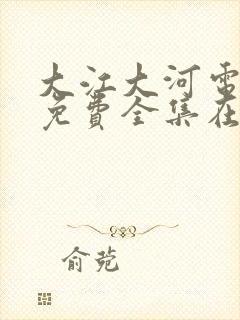 大江大河电
免费全集在
俞苑